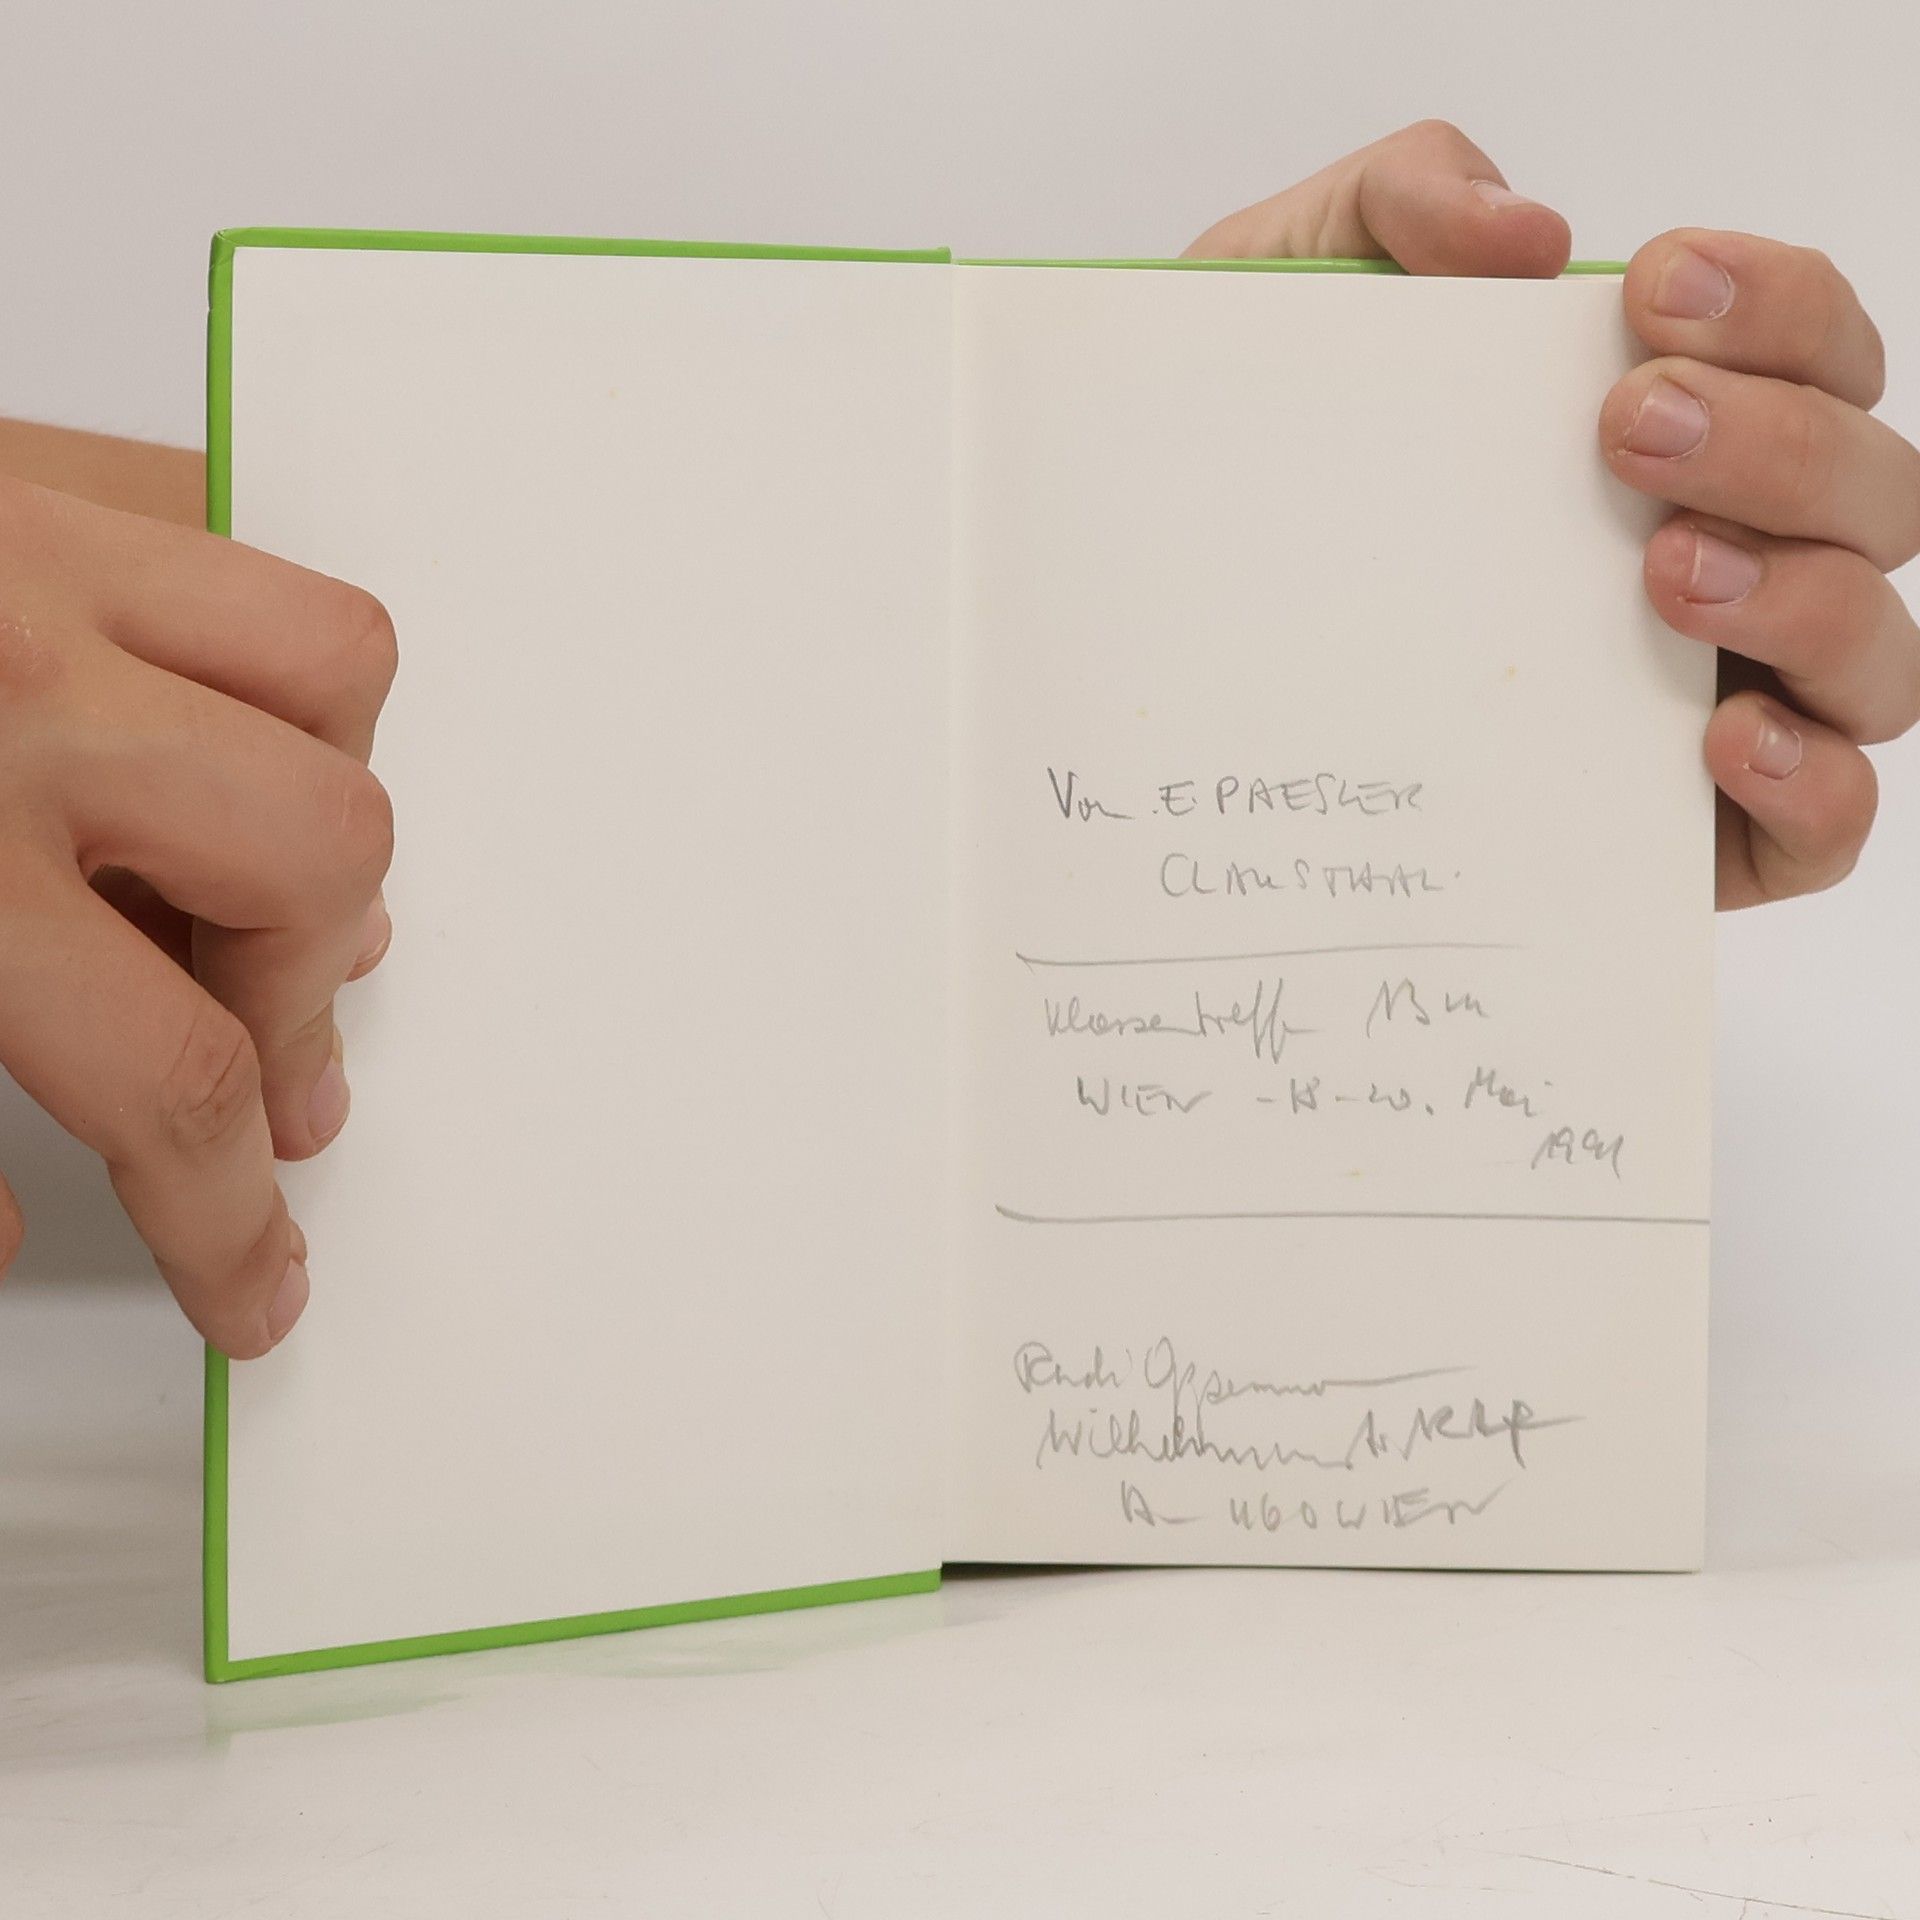 Von E. PAESLER
CLAUSTHAL.
Klassentreffen
WIEN - 18-20. Mai
1991
Rudi Oppermann
A- 1160 WIEN